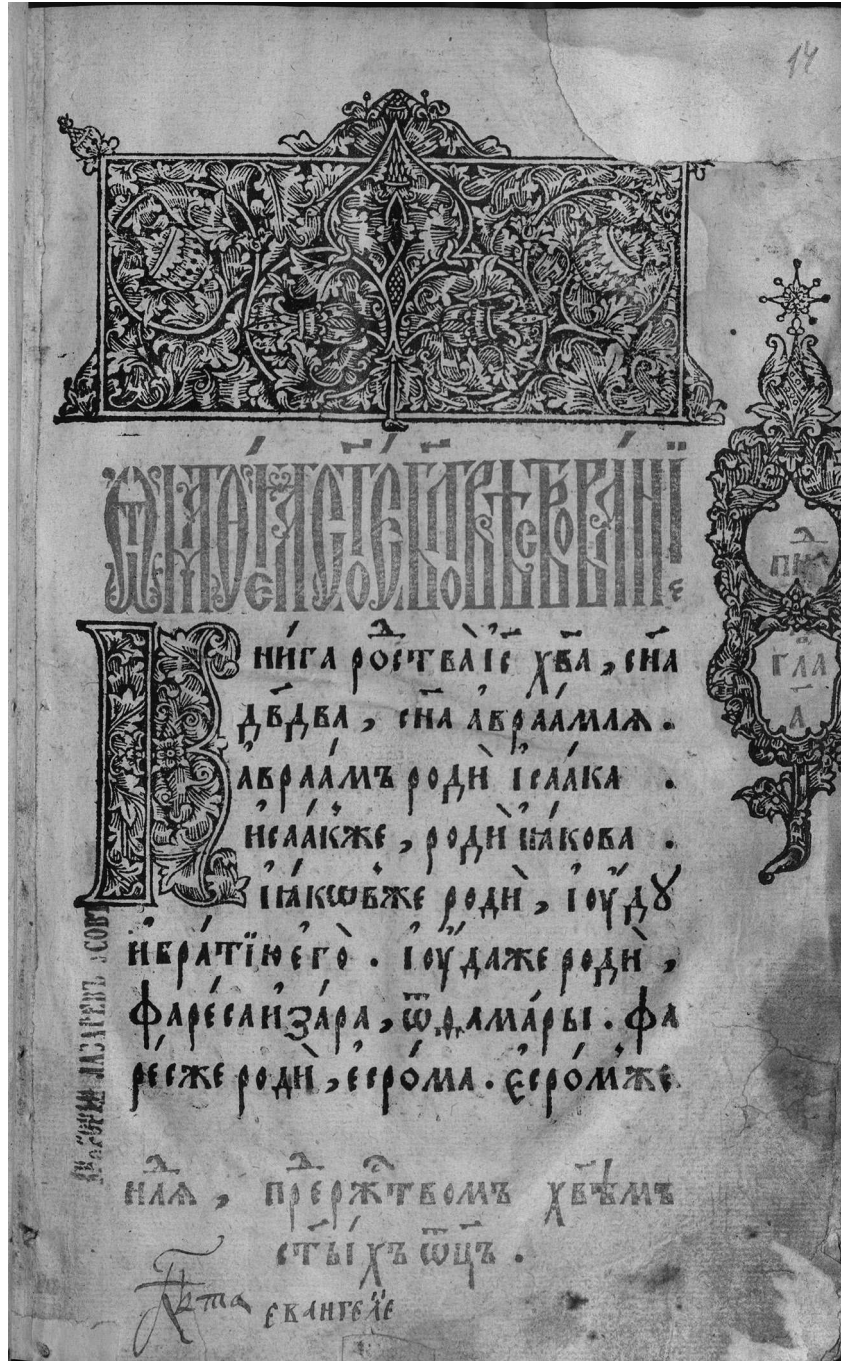 14
Ѿ маѳе́а ст҃о́е бл҃говѣствова́нїе
пн҃
гла
а҃
Кни́га рос́тва і҆с҃ х҃ва, сн҃а
дв҃два, сн҃а а҆враа́мля.
а҆враа́мъ родѝ і҆саа́ка .
и҆саа́кже, родѝ и҆ꙗ́кова .
і҆ꙗ́кѡвже родѝ, і҆ꙋ́дꙋ
и҆бра́тїю его̀. і҆оу́даже родѝ,
фаре́са и҆за́ра, ѿ ѳама́ры. фа
ре́сже родѝ, е҆сро́ма. е҆сро́мже
наꙗ, прⷣержⷭ҇твомъ хв҃ѣмъ
ст҃ы́хъ ѿц҃ъ.
евангелїе